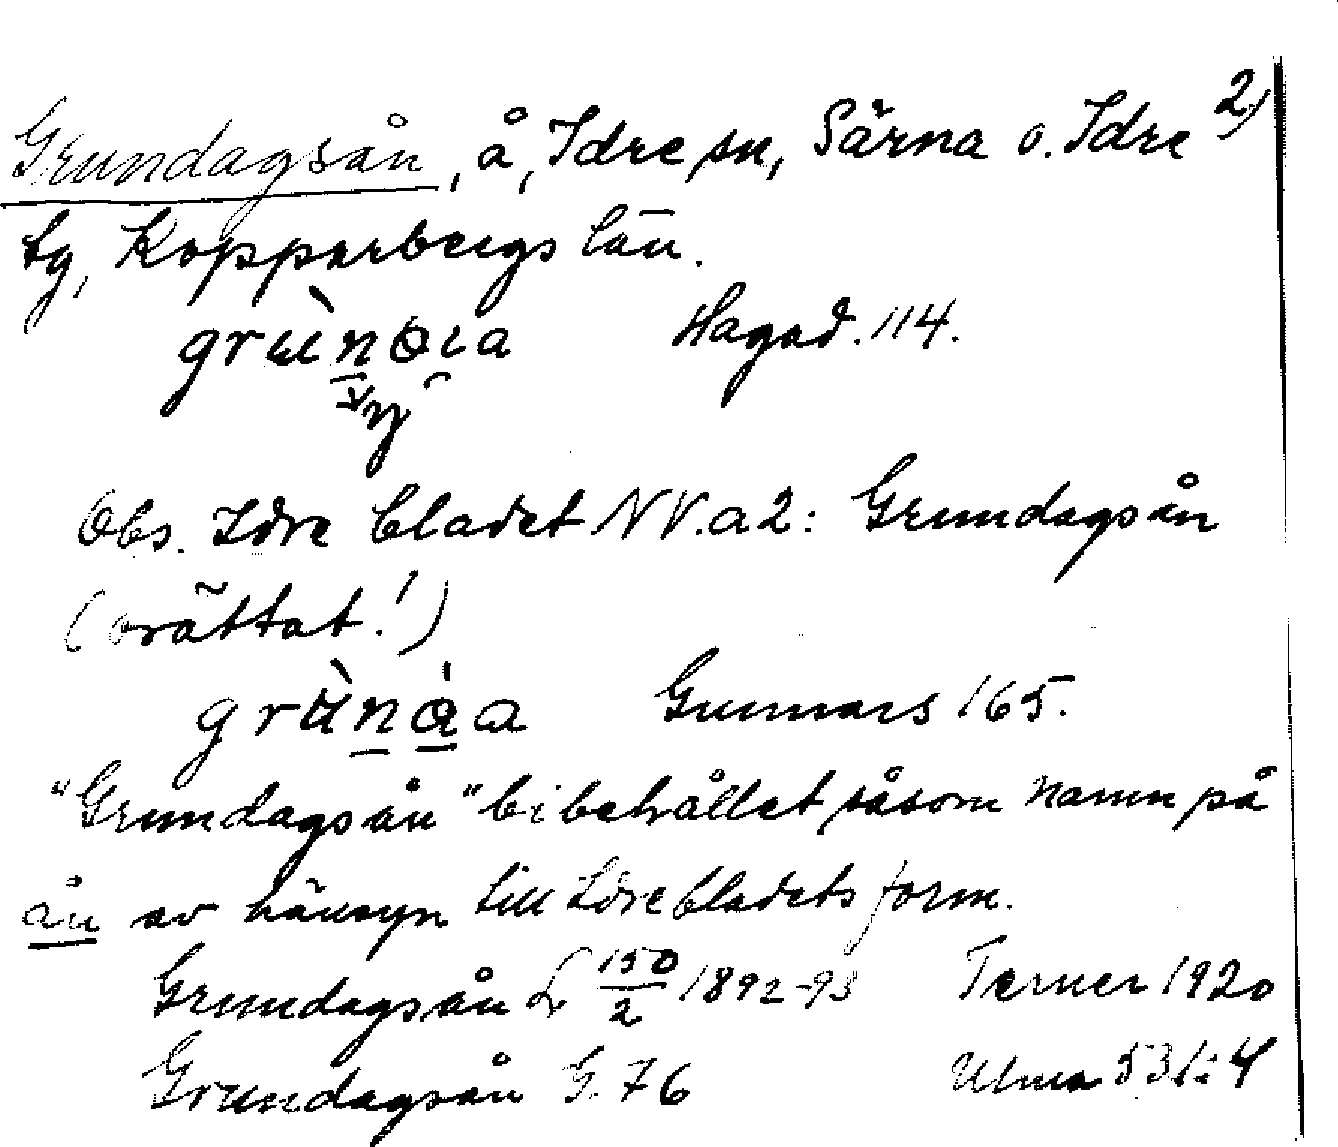 Grundagsån, å, Idre sn, Särna o. Idre 2)
tg, Kopparbergs län.
Hagad. 114.
Obs. Idre bladet NV.a2: Grundagsån
(orättat!)
Gunnars 165.
"Grundagsån" bibehållet såsom namn på
ån av hänsyn till Idrebladets form.
Grundagsån L 150/2 1892-93 Terner 1920
Grundagsån G. 76 Ulma 531:4